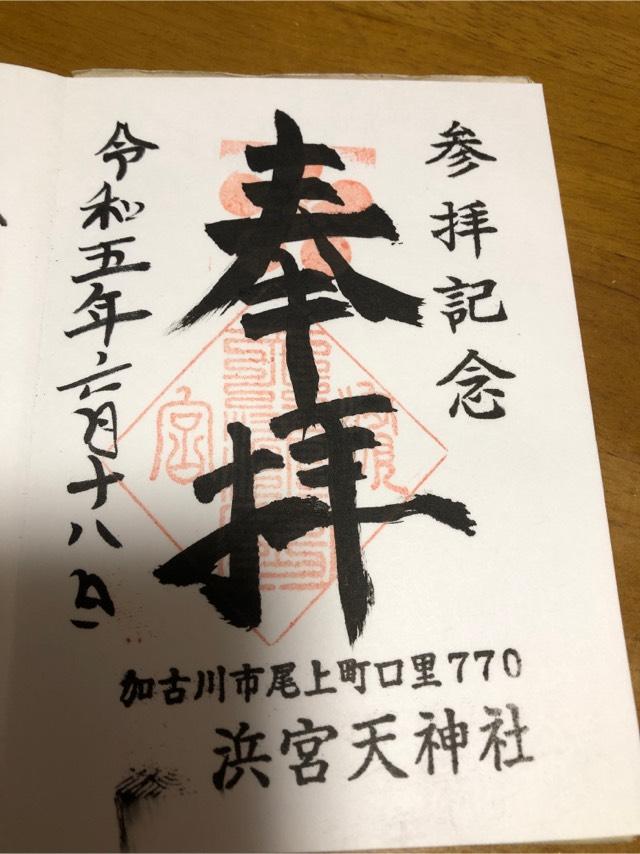 参拝記念
奉拝
令和五年六月十八日
加古川市尾上町口里770
浜宮天神社